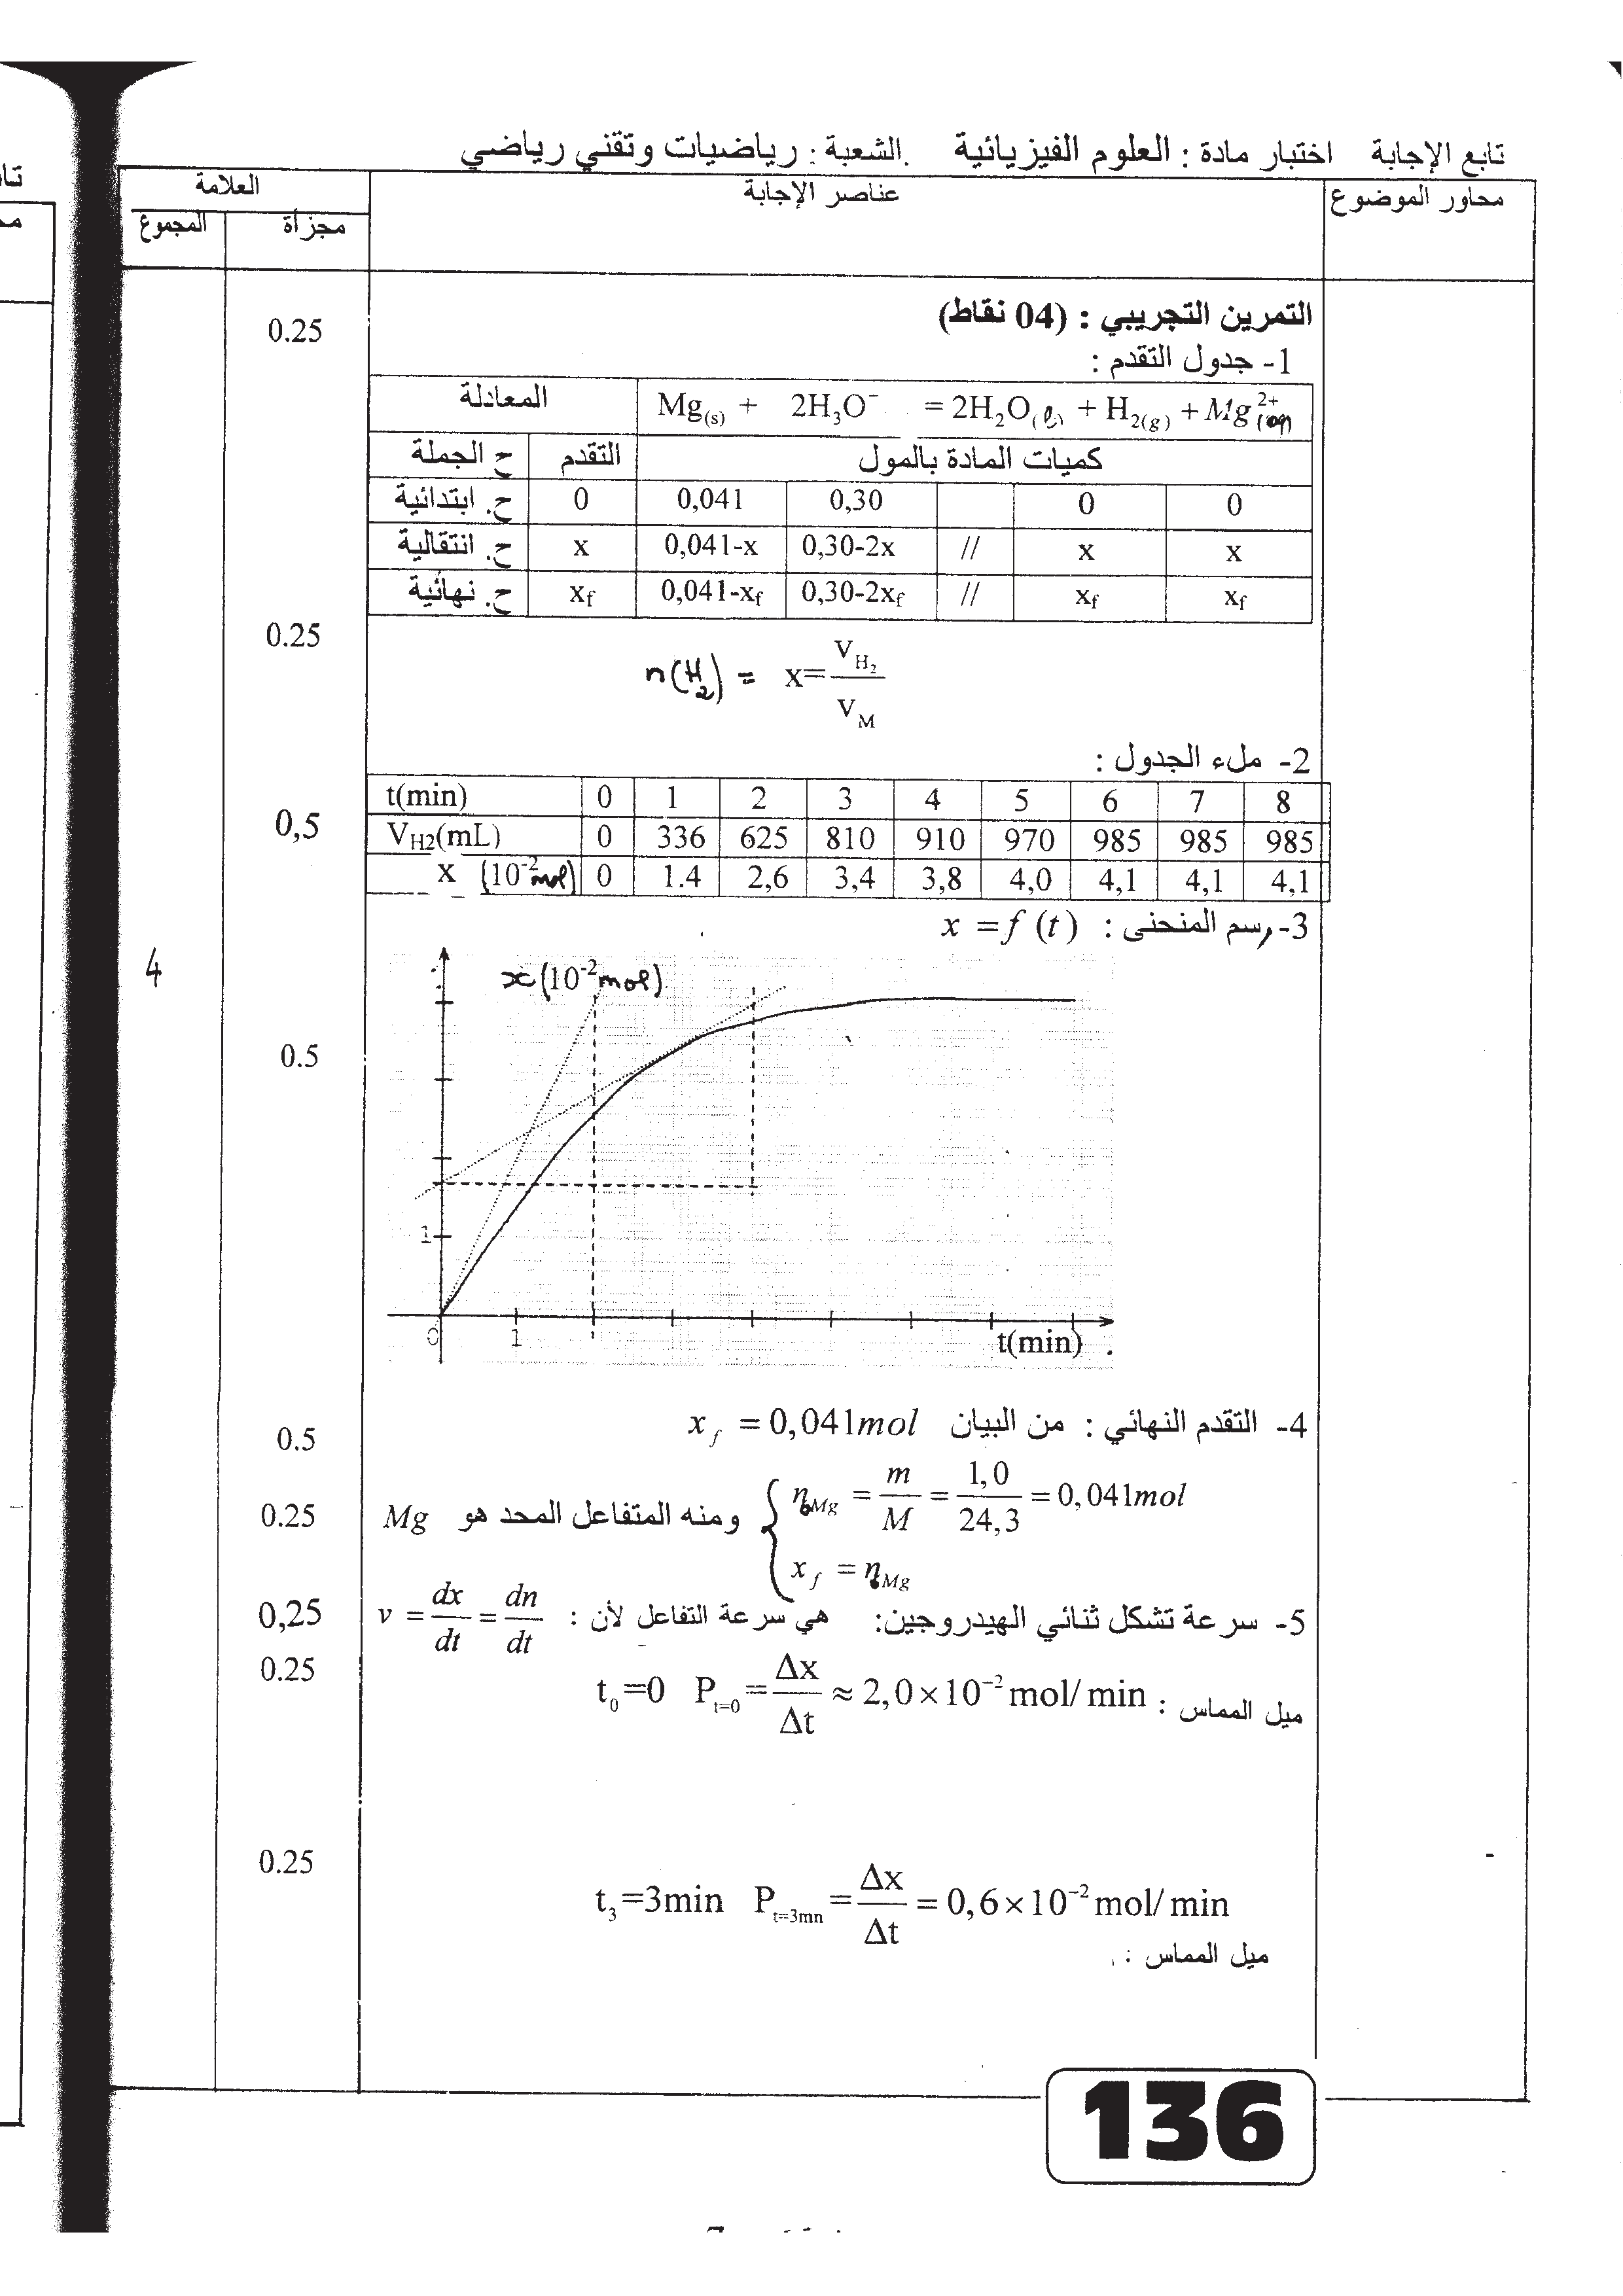 تابع الإجابة اختبار مادة : العلوم الفيزيائية .الشعبة : رياضيات وتقني رياضي
محاور الموضوع | عناصر الإجابة | العلامة
مجزأة | المجموع
التمرين التجريبي : (04 نقاط)
0.25
1- جدول التقدم :
المعادلة | Mg(s) + 2H₃O⁻ = 2H₂O(l) + H₂(g) + Mg²⁺(aq)
ح الجملة | التقدم | كميات المادة بالمول
ح. ابتدائية | 0 | 0,041 | 0,30 | | 0 | 0
ح. انتقالية | x | 0,041-x | 0,30-2x | // | x | x
ح. نهائية | xf | 0,041-xf | 0,30-2xf | // | xf | xf
0.25
n(H₂) = x = V_H₂ / V_M
2- ملء الجدول :
t(min) | 0 | 1 | 2 | 3 | 4 | 5 | 6 | 7 | 8
0,5
V_H2(mL) | 0 | 336 | 625 | 810 | 910 | 970 | 985 | 985 | 985
x (10⁻² mol) | 0 | 1.4 | 2,6 | 3,4 | 3,8 | 4,0 | 4,1 | 4,1 | 4,1
3- رسم المنحنى : x = f (t)
4
x(10⁻² mol)
0.5
1
0 1 t(min)
4- التقدم النهائي : من البيان x_f = 0,041mol
0.5
n₀Mg = m/M = 1,0/24,3 = 0,041mol
0.25
ومنه المتفاعل المحد هو Mg
x_f = n₀Mg
5- سرعة تشكل ثنائي الهيدروجين: هي سرعة التفاعل لأن : v = dx/dt = dn/dt
0,25
0.25
ميل المماس : t₀=0 P_t=0 = Δx/Δt ≈ 2,0×10⁻² mol/min
0.25
t₃=3min P_t=3mn = Δx/Δt = 0,6×10⁻² mol/min
ميل المماس :
136